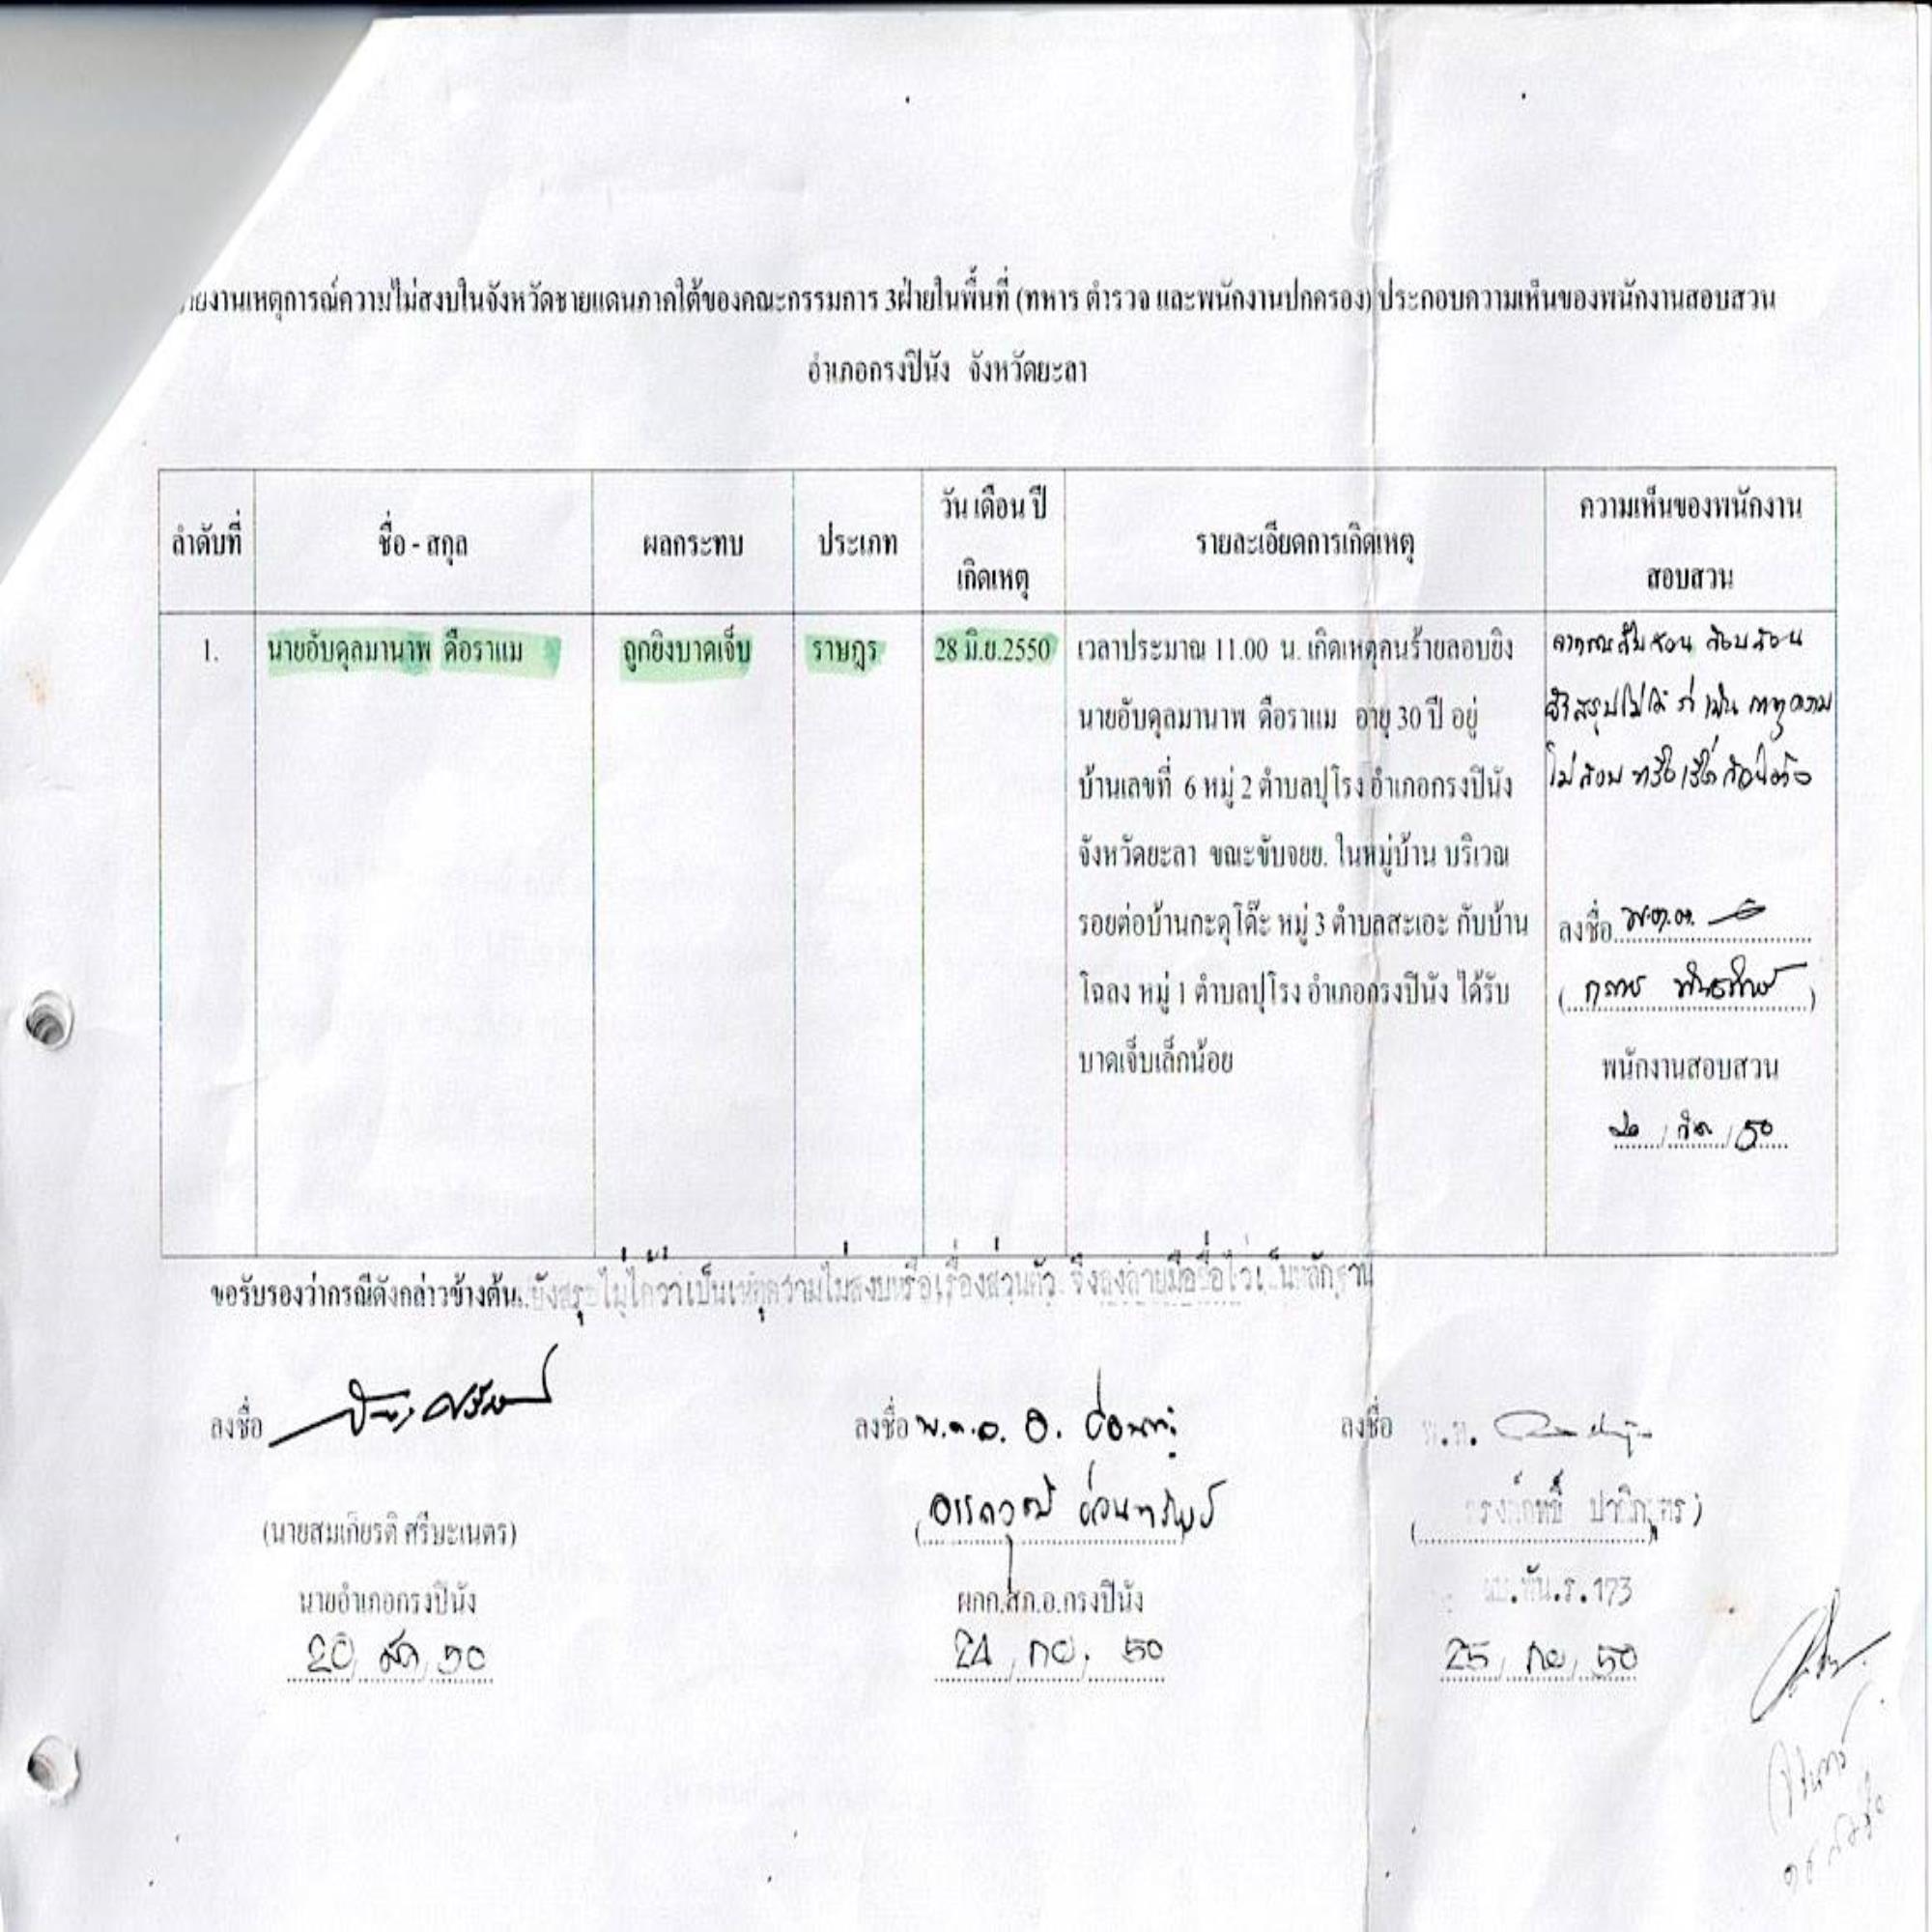 ายงานเหตุการณ์ความไม่สงบในจังหวัดชายแดนภาคใต้ของคณะกรรมการ 3ฝ่ายในพื้นที่ (ทหาร ตำรวจ และพนักงานปกครอง) ประกอบความเห็นของพนักงานสอบสวน
อำเภอกรงปินัง จังหวัดยะลา
ลำดับที่ ชื่อ - สกุล ผลกระทบ ประเภท วัน เดือน ปี เกิดเหตุ รายละเอียดการเกิดเหตุ ความเห็นของพนักงาน สอบสวน
1. นายอับดุลมานาพ ดือราแม ถูกยิงบาดเจ็บ ราษฎร 28 มิ.ย.2550 เวลาประมาณ 11.00 น. เกิดเหตุคนร้ายลอบยิง
นายอับดุลมานาพ ดือราแม อายุ 30 ปี อยู่
บ้านเลขที่ 6 หมู่ 2 ตำบลปุโรง อำเภอกรงปินัง
จังหวัดยะลา ขณะขับจยย. ในหมู่บ้าน บริเวณ
รอยต่อบ้านกะดุโด๊ะ หมู่ 3 ตำบลสะเอะ กับบ้าน
โฉลง หมู่ 1 ตำบลปุโรง อำเภอกรงปินัง ได้รับ
บาดเจ็บเล็กน้อย
จากการสืบสวน สอบสวน
ยังสรุปไม่ได้ ว่าเป็น เหตุความ
ไม่สงบ หรือเรื่องส่วนตัว
ลงชื่อ
พนักงานสอบสวน
50
ขอรับรองว่ากรณีดังกล่าวข้างต้น..ยังสรุปไม่ได้ว่าเป็นเหตุความไม่สงบหรือเรื่องส่วนตัว จึงลงลายมือชื่อไว้เป็นหลักฐาน
ลงชื่อ
ลงชื่อ พ.ต.อ.
ลงชื่อ พ.ท.
(นายสมเกียรติ ศรีษะเนตร)
นายอำเภอกรงปินัง
ผกก.สภ.อ.กรงปินัง
ผบ.พัน.ร.173
20 / 50
24 / กย. 50
25 / กย / 50